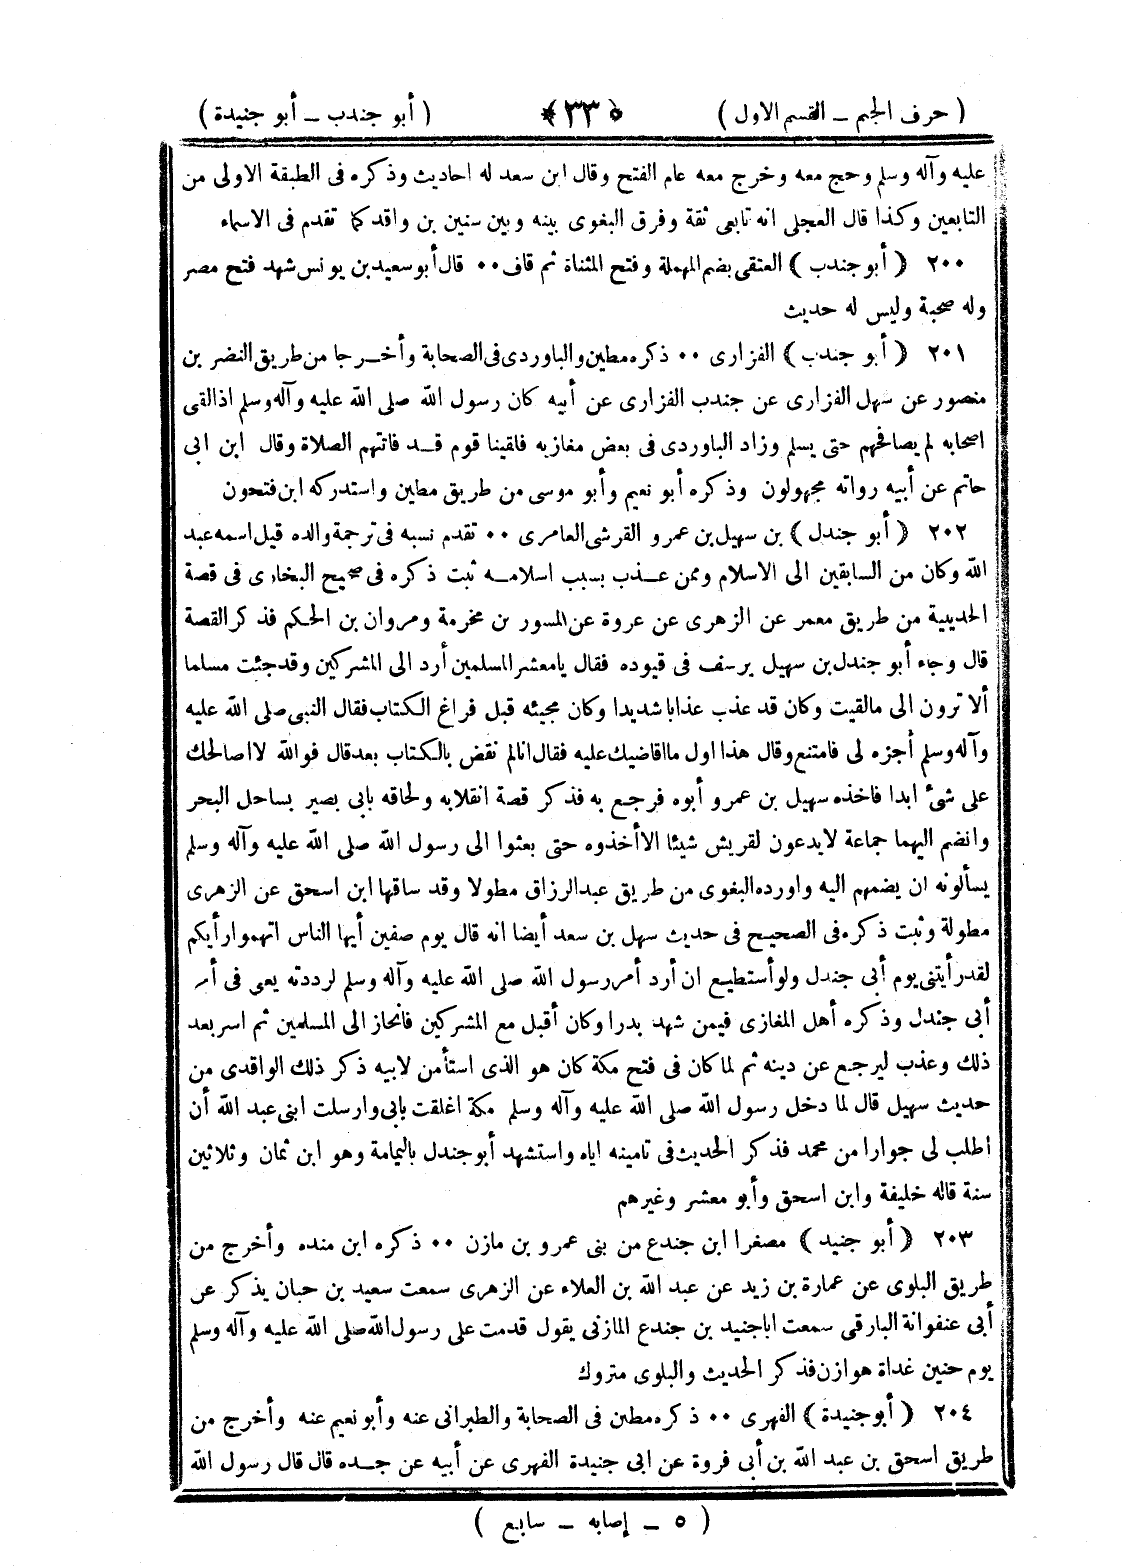 ( حرف الجيم – القسم الاول ) ﴿٣٣﴾ ( أبو جندب – أبو جنيدة )
عليه وآله وسلم وحج معه وخرج معه عام الفتح وقال ابن سعد له احاديث وذكره فى الطبقة الاولى من
التابعين وكذا قال العجلى انه تابعى ثقة وفرق البغوى بينه وبين سنين بن واقد كما تقدم فى الاسماء
٢٠٠ ﴿ أبو جندب ﴾ العتقى بضم المهملة وفتح المثناة ثم قاف ٠٠ قال أبو سعيد بن يونس شهد فتح مصر
وله صحبة وليس له حديث
٢٠١ ﴿ أبو جندب ﴾ الفزارى ٠٠ ذكره مطين والباوردى فى الصحابة وأخـرجا من طريق النضر بن
منصور عن سهل الفزارى عن جندب الفزارى عن أبيه كان رسول الله صلى الله عليه وآله وسلم اذا لقى
اصحابه لم يصافحهم حتى يسلم وزاد الباوردى فى بعض مغازيه فلقينا قوم قـد فاتتهم الصلاة وقال ابن ابى
حاتم عن أبيه رواته مجهولون وذكره أبو نعيم وأبو موسى من طريق مطين واستدركه ابن فتحون
٢٠٢ ﴿ أبو جندل ﴾ بن سهيل بن عمرو القرشى العامرى ٠٠ تقدم نسبه فى ترجمة والده قيل اسمه عبد
الله وكان من السابقين الى الاسلام وممن عـذب بسبب اسلامـه ثبت ذكره فى صحيح البخارى فى قصة
الحديبية من طريق معمر عن الزهرى عن عروة عن المسور بن مخرمة ومروان بن الحكم فذكر القصة
قال وجاء أبو جندل بن سهيل يرسف فى قيوده فقال يامعشر المسلمين أرد الى المشركين وقد جئت مسلما
ألا ترون الى مالقيت وكان قد عذب عذابا شديدا وكان مجيئه قبل فراغ الكتاب فقال النبى صلى الله عليه
وآله وسلم أجزه لى فامتنع وقال هذا اول مااقاضيك عليه فقال انالم نقض بالكتاب بعد قال فوالله لا اصالحك
على شئ ابدا فاخذه سهيل بن عمرو أبوه فرجـع به فذكر قصة انقلابه ولحاقه بابى بصير بساحل البحر
وانضم اليهما جماعة لايدعون لقريش شيئا الا أخذوه حتى بعثوا الى رسول الله صلى الله عليه وآله وسلم
يسألونه ان يضمهم اليه واورده البغوى من طريق عبدالرزاق مطولا وقد ساقها ابن اسحق عن الزهرى
مطولة وثبت ذكره فى الصحيح فى حديث سهل بن سعد أيضا انه قال يوم صفين أيها الناس اتهموا رأيكم
لقد رأيتنى يوم أبى جندل ولو أستطيـع ان أرد أمر رسول الله صلى الله عليه وآله وسلم لرددته يعى فى أمر
أبى جندل وذكره أهل المغازى فيمن شهد بدرا وكان أقبل مع المشركين فانحاز الى المسلمين ثم اسر بعد
ذلك وعذب ليرجـع عن دينه ثم لما كان فى فتح مكة كان هو الذى استأمن لابيه ذكر ذلك الواقدى من
حديث سهيل قال لما دخل رسول الله صلى الله عليه وآله وسلم مكة اغلقت بابى وارسلت ابنى عبد الله أن
اطلب لى جوارا من محمد فذكر الحديث فى تامينه اياه واستشهد أبو جندل باليمامة وهو ابن ثمان وثلاثين
سنة قاله خليفة وابن اسحق وأبو معشر وغيرهم
٢٠٣ ﴿ أبو جنيد ﴾ مصغرا ابن جندع من بنى عمرو بن مازن ٠٠ ذكره ابن منده وأخرج من
طريق البلوى عن عمارة بن زيد عن عبد الله بن العلاء عن الزهرى سمعت سعيد بن حبان يذكر عن
أبى عنفوانة البارقى سمعت اباجنيد بن جندع المازنى يقول قدمت على رسول الله صلى الله عليه وآله وسلم
يوم حنين غداة هوازن فذكر الحديث والبلوى متروك
٢٠٤ ﴿ أبو جنيدة ﴾ الفهرى ٠٠ ذكره مطين فى الصحابة والطبرانى عنه وأبو نعيم عنه وأخرج من
طريق اسحق بن عبد الله بن أبى فروة عن ابى جنيدة الفهرى عن أبيه عن جـده قال قال رسول الله
( ٥ – إصابه – سابع )